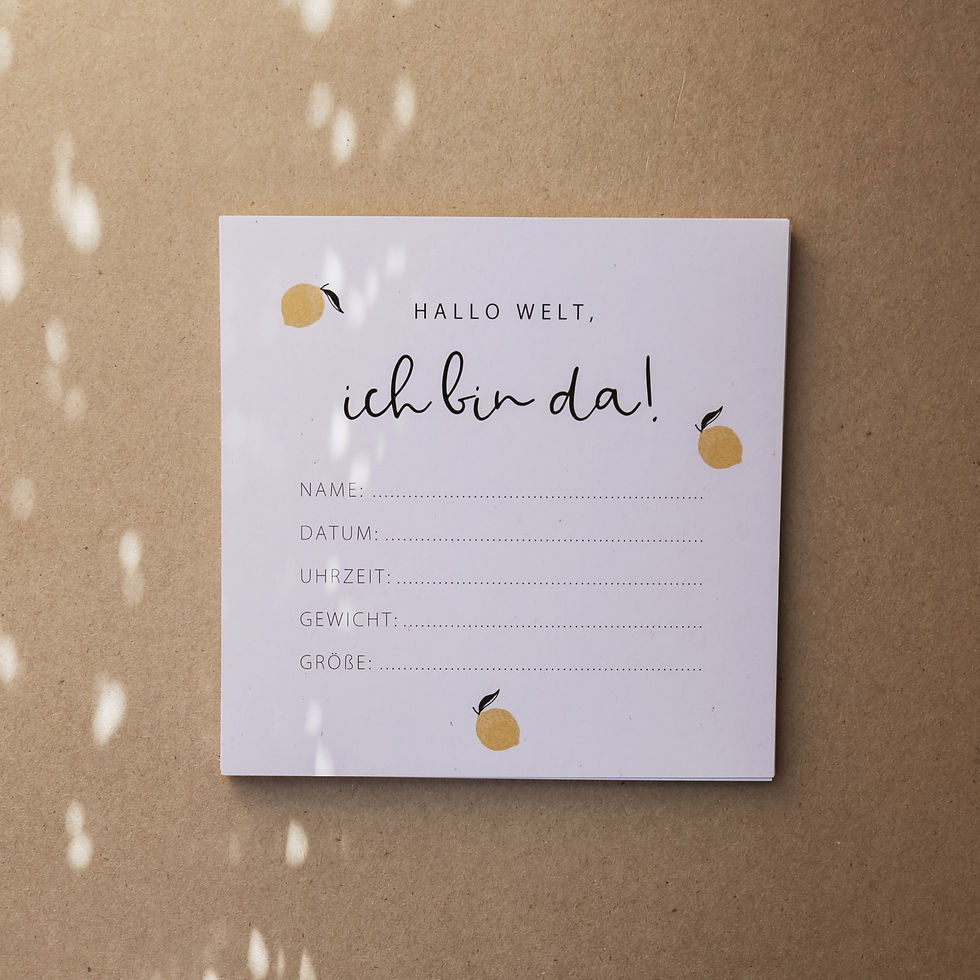 HALLO WELT,
ich bin da!
NAME: ..........................................................................
DATUM: .......................................................................
UHRZEIT: ....................................................................
GEWICHT: ...................................................................
GRÖßE: ........................................................................